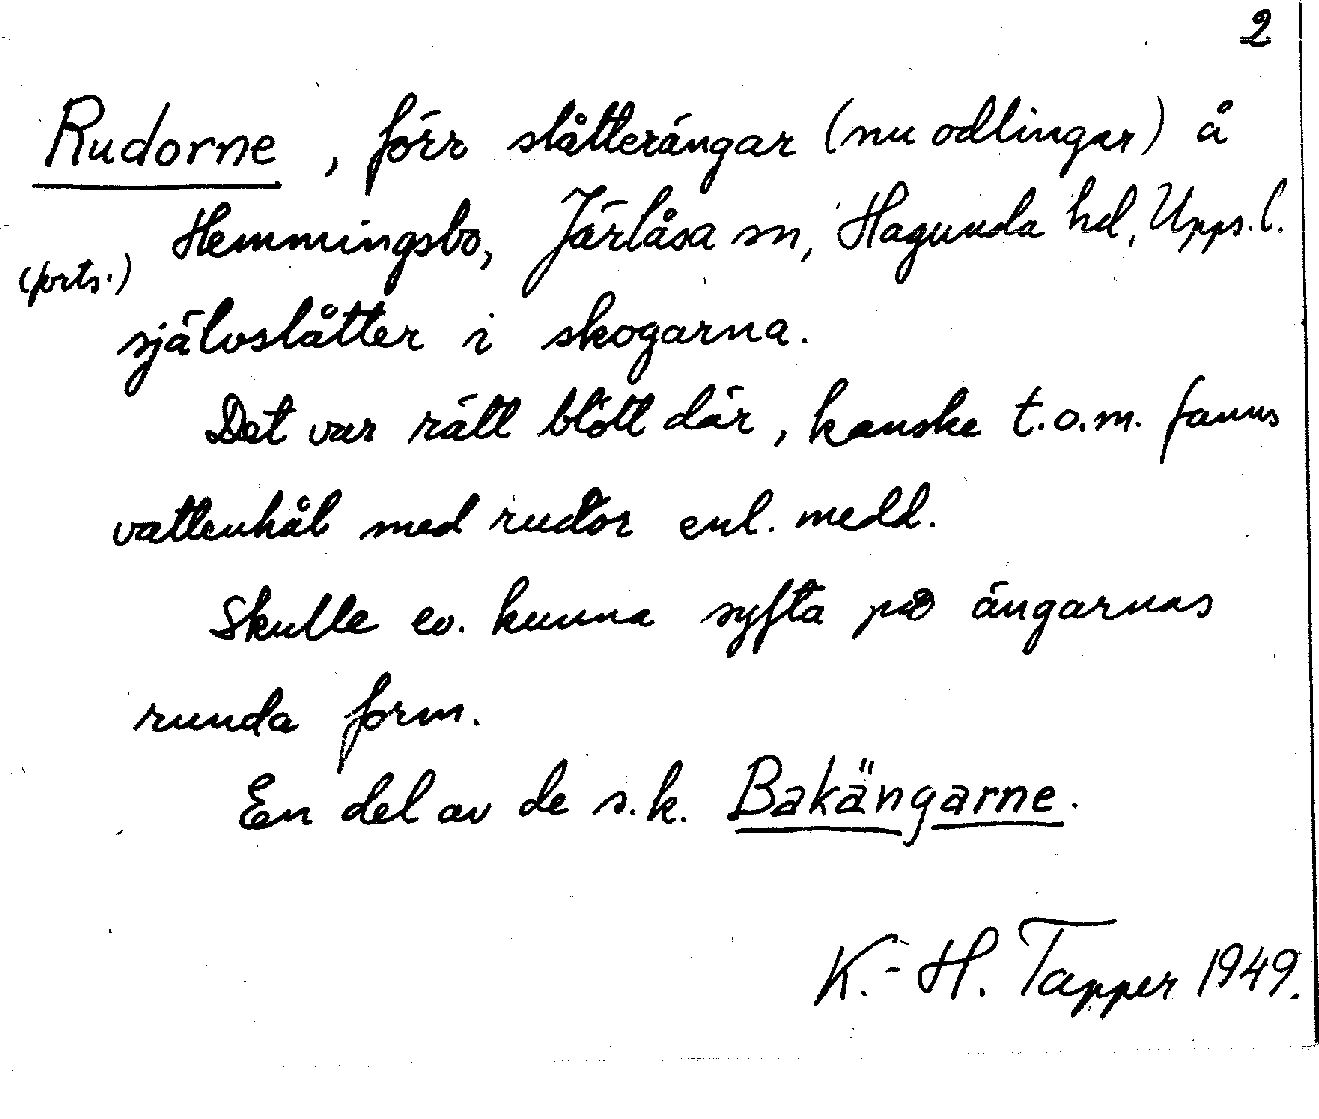 2
Rudorne, förr slåtterängar (nu odlingar) å
Hemmingsbo, Järlåsa sn, Hagunda hd, Upps. l.
(forts.)
självslåtter i skogarna.
Det var rätt blött där, kanske t.o.m. fanns
vattenhål med rudor enl. medd.
Skulle ev. kunna syfta på ängarnas
runda form.
En del av de s.k. Bakängarne.
K.-H. Tapper 1949.